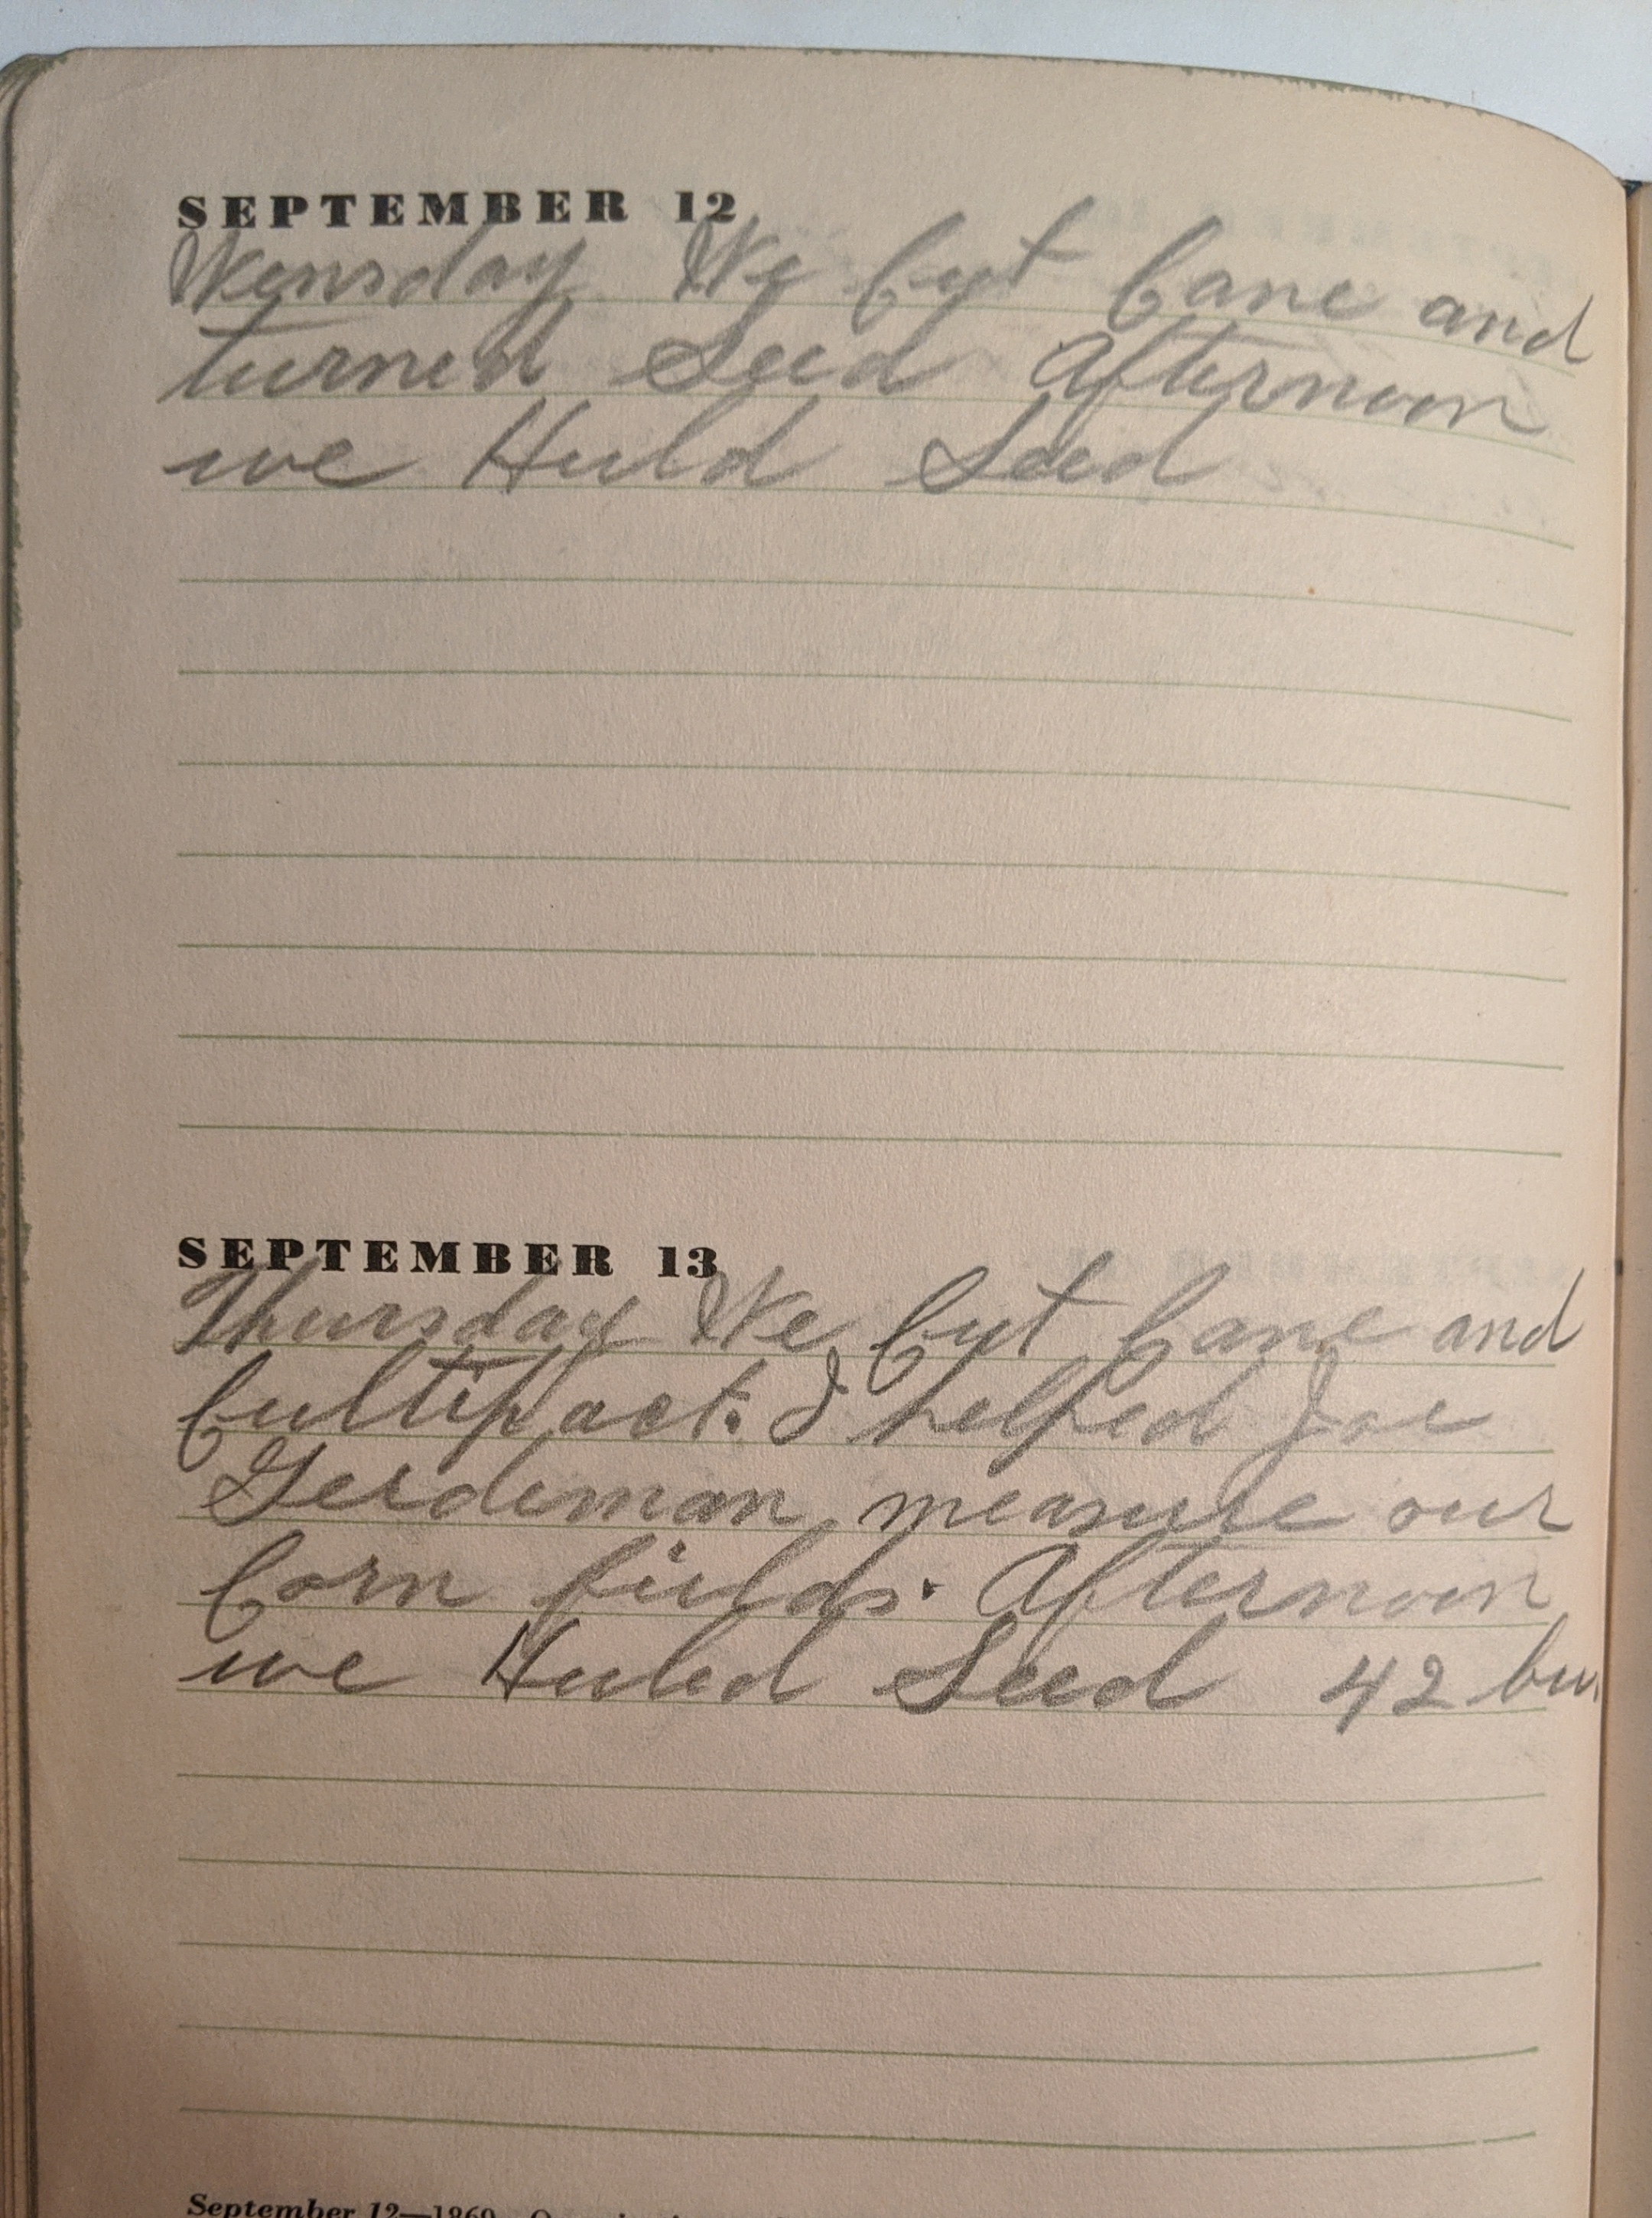 SEPTEMBER 12
Wensday We Cut Cane and
turned Seed Afternoon
we Huld Seed
SEPTEMBER 13
Thursday We Cut Cane and
Cultipact. I helped Joe
Gerdeman measure our
Corn fields. Afternoon
we Huled Seed 42 bu.
September 12—1869